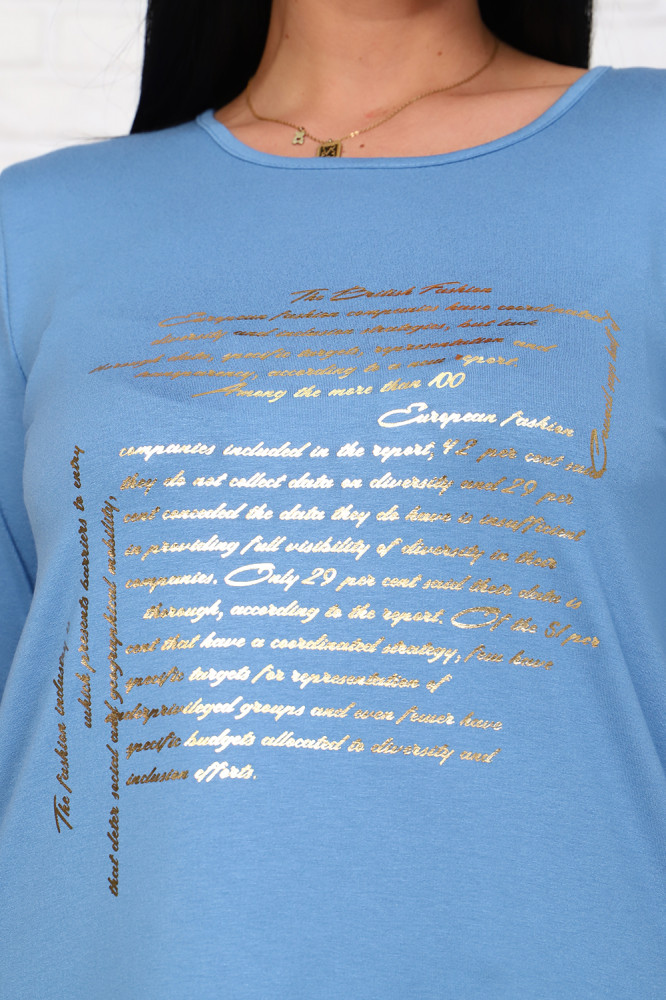 The British Fashion
European fashion companies have coordinated
diversity and inclusion strategies, but lack
enough data, specific targets, representation and
transparency, according to a new report.
Among the more than 100
European fashion
companies included in the report, 42 per cent said
they do not collect data on diversity and 29 per
cent conceded the data they do have is insufficient
in providing full visibility of diversity in their
companies. Only 29 per cent said their data is
thorough, according to the report. Of the 51 per
cent that have a coordinated strategy, few have
specific targets for representation of
underprivileged groups and even fewer have
specific budgets allocated to diversity and
inclusion efforts.
The fashion industry
which presents barriers to entry
that deter social and geographical mobility,